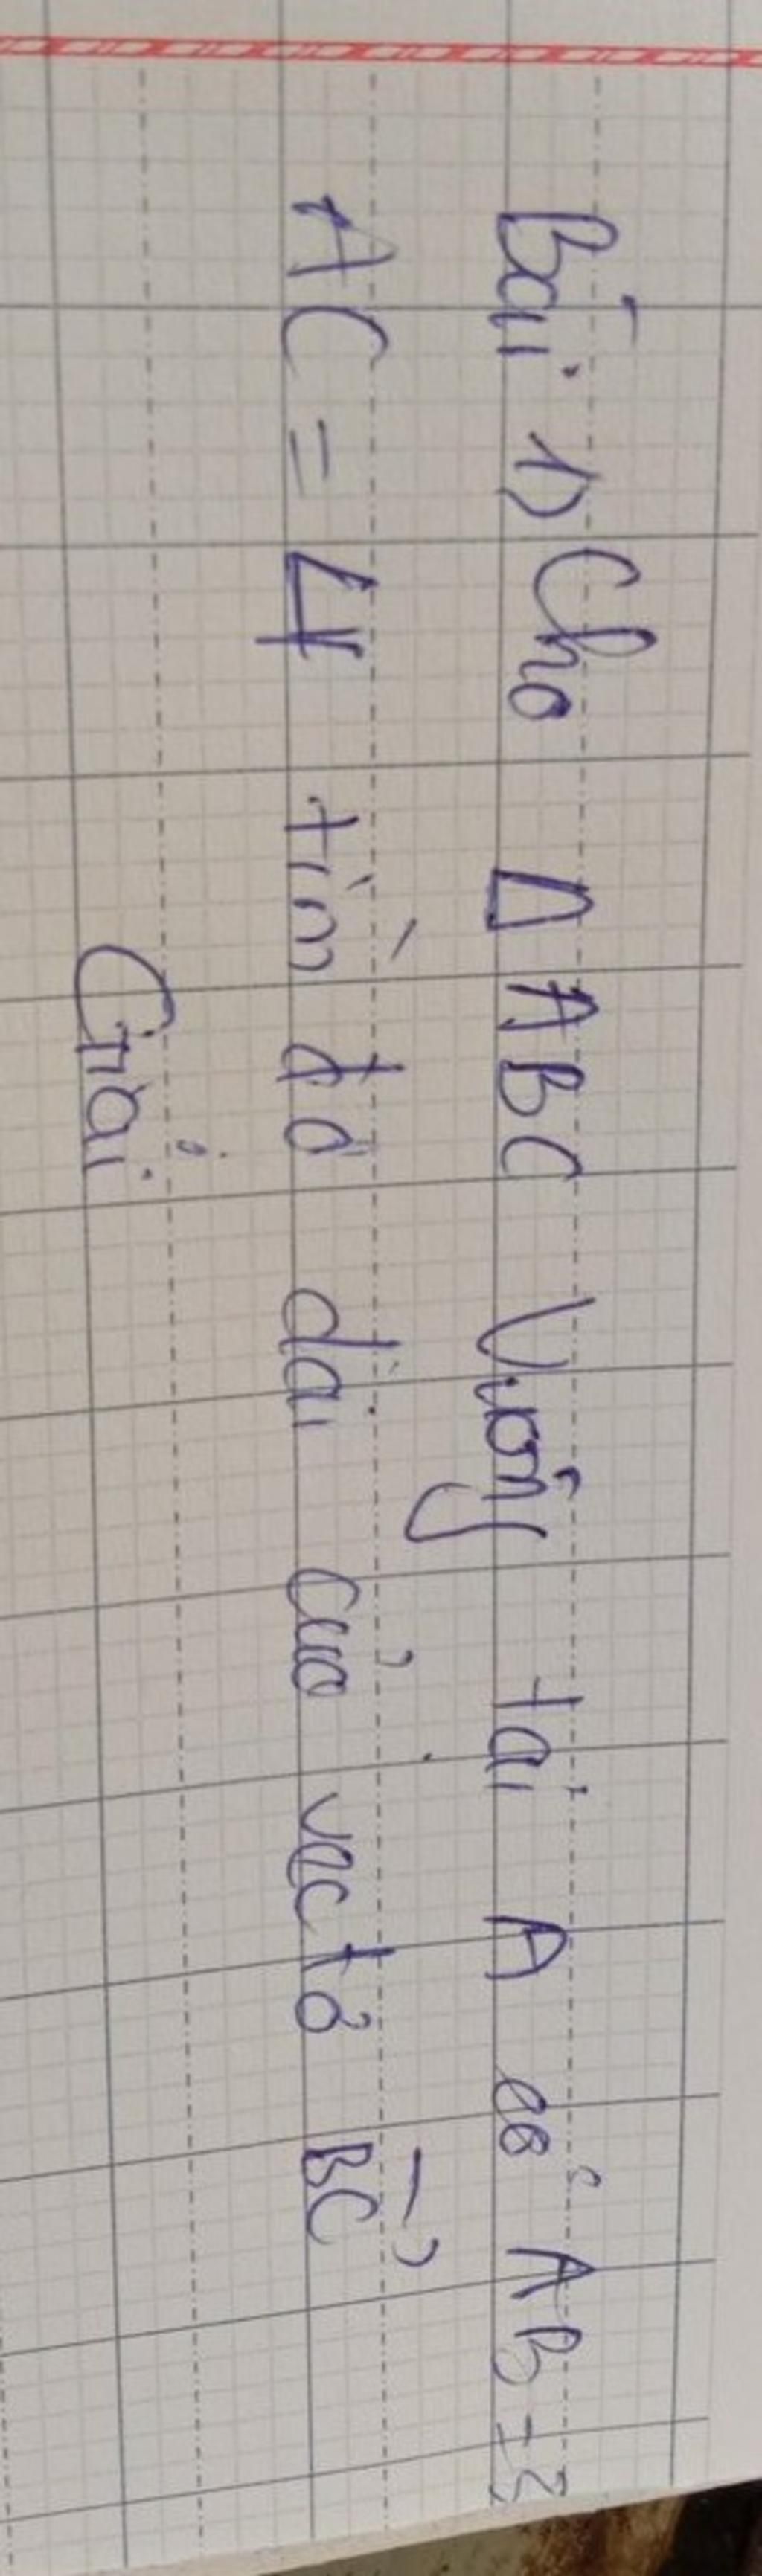 Bài 1) Cho Δ ABC Vuông tại A có AB = 3
AC = 4 tìm độ dài của vectơ BC⃗
Giải